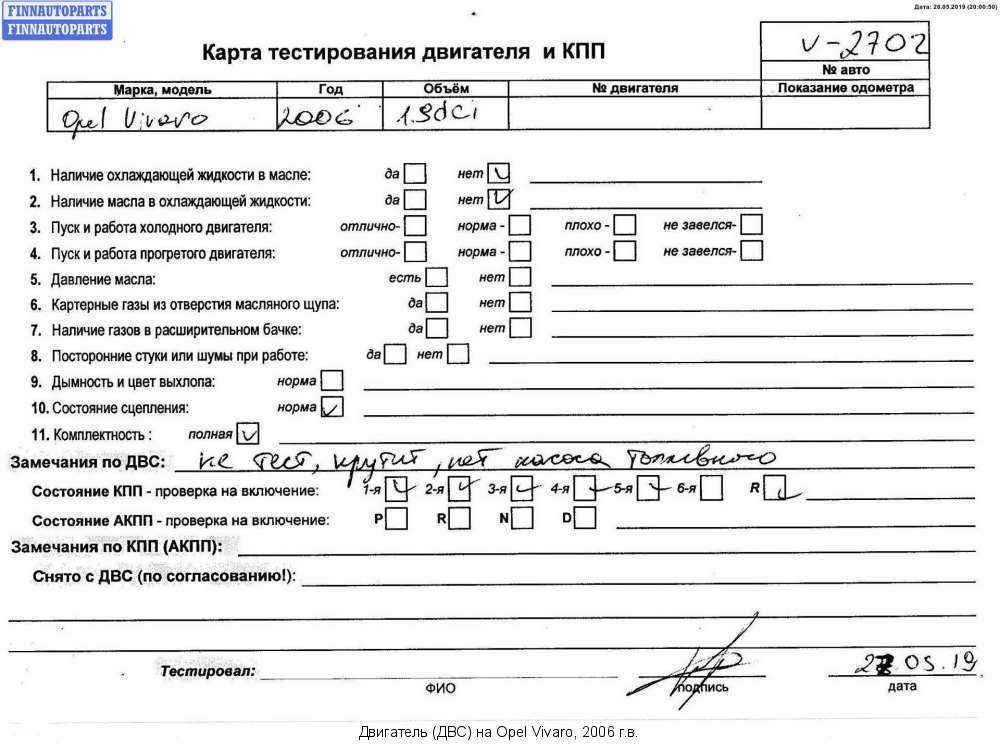 FINNAUTOPARTS
FINNAUTOPARTS
Дата: 28.05.2019 (20:00:50)
Карта тестирования двигателя и КПП
V-2702
№ авто
Марка, модель Год Объём № двигателя Показание одометра
Opel Vivaro 2006 1.9dci
1. Наличие охлаждающей жидкости в масле: да нет
2. Наличие масла в охлаждающей жидкости: да нет
3. Пуск и работа холодного двигателя: отлично- норма - плохо - не завелся-
4. Пуск и работа прогретого двигателя: отлично- норма - плохо - не завелся-
5. Давление масла: есть нет
6. Картерные газы из отверстия масляного щупа: да нет
7. Наличие газов в расширительном бачке: да нет
8. Посторонние стуки или шумы при работе: да нет
9. Дымность и цвет выхлопа: норма
10. Состояние сцепления: норма
11. Комплектность : полная
Замечания по ДВС: не тест, крутит, нет насоса топливного
Состояние КПП - проверка на включение: 1-я 2-я 3-я 4-я 5-я 6-я R
Состояние АКПП - проверка на включение: P R N D
Замечания по КПП (АКПП):
Снято с ДВС (по согласованию!):
Тестировал:
ФИО подпись дата
05.19
Двигатель (ДВС) на Opel Vivaro, 2006 г.в.